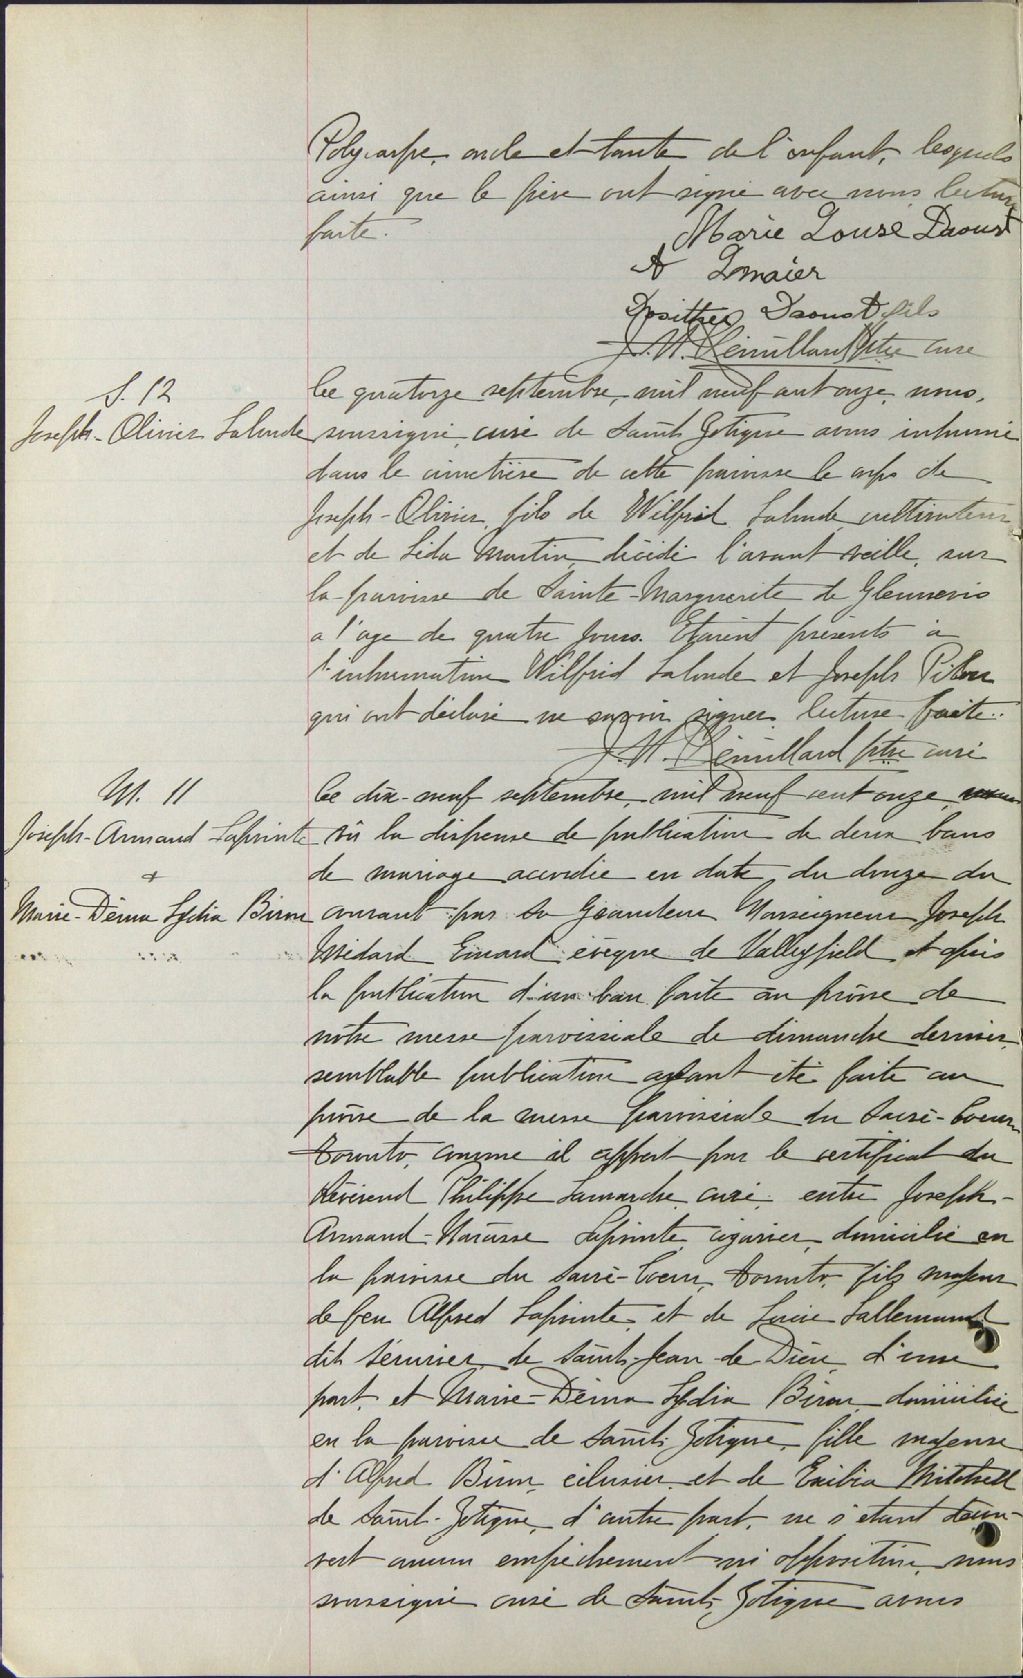 Polycarpe, oncle et tante de l'enfant, lesquels
ainsi que le père ont signé avec nous lecture
faite.
Marie Louise Daoust
A
Dosithée Daoust fils
J. A. ptre curé
S. 12
Joseph-Olivier Lalonde
Le quatorze septembre, mil neuf cent onze, nous,
soussigné, curé de Saint Zotique avons inhumé
dans le cimetière de cette paroisse le corps de
Joseph-Olivier, fils de Wilfrid Lalonde cultivateur
et de Léda Martin, décédé l'avant veille, sur
la paroisse de Sainte-Marguerite de Glennevis
a l'age de quatre jours. Etaient présents à
l'inhumation Wilfrid Lalonde et Joseph Pilon
qui ont déclaré ne savoir signer lecture faite.
J. A. ptre curé
M. 11
Joseph-Armand Lapointe
+
Marie-Déma Lydia Biron
Le dix-neuf septembre, mil neuf cent onze,
vû la dispense de publication de deux bans
de mariage accordée en date du douze du
courant par Sa Grandeur Monseigneur Joseph
Médard Emard évêque de Valleyfield, et après
la publication d'un ban faite au prône de
nôtre messe paroissiale de dimanche dernier,
semblable publication ayant été faite au
prône de la messe paroissiale du Sacré-Coeur
Toronto, comme il appert par le certificat du
Révérend Philippe Lamarche, curé, entre Joseph-
Armand-Narcisse Lapointe, cigarier, domicilié en
la paroisse du Sacré-Coeur, Toronto, fils majeur
de feu Alfred Lapointe, et de Lucie Lallemand
dit Sérurier, de Saint-Jean-de-Dieu, d'une
part, et Marie-Déma Lydia Biron, domiciliée
en la paroisse de Saint-Zotique, fille majeure
d'Alfred Biron, éclusier, et de Mitchell
de Saint-Zotique, d'autre part, ne s'étant décou-
vert aucun empêchement ni opposition, nous
soussigné curé de Saint-Zotique avons